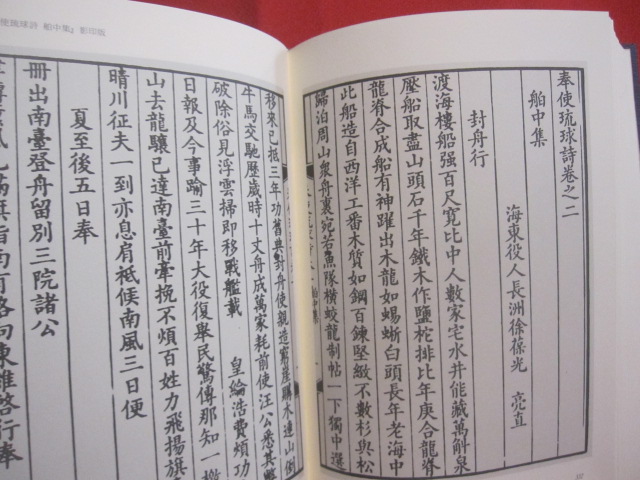 奉使琉球詩卷之二
舶中集
海東役人長洲徐葆光 亮直
封舟行
渡海樓船强百尺寬比中人數家宅水井能藏萬斛泉
壓船取盡山頭石千年鐵木作鹽柁排比年庚合龍脊
龍脊合成船有神躍出木龍如蜥蜴白頭長年老海中
此船造自西洋工番木質如鋼百鍊堅緻不數杉與松
歸泊周山衆舟裏宛若魚隊橫蛟龍制帖一下獨中選
移來已抵三年功舊典封舟使親造窮崖購木連山倒
牛馬交馳歷歲時十丈舟成萬家耗前使汪公悉其弊
破除俗見浮雲掃即移戰艦載 皇綸浩費煩功
日報及今事踰三十年大役復舉民驚傳那知一檄
山去龍驤已達南臺前牽挽不煩百姓力飛揚旗
晴川征夫一到亦息肩祇候南風三日便
夏至後五日奉
冊出南臺登舟留別三院諸公
使琉球詩 舶中集』影印版